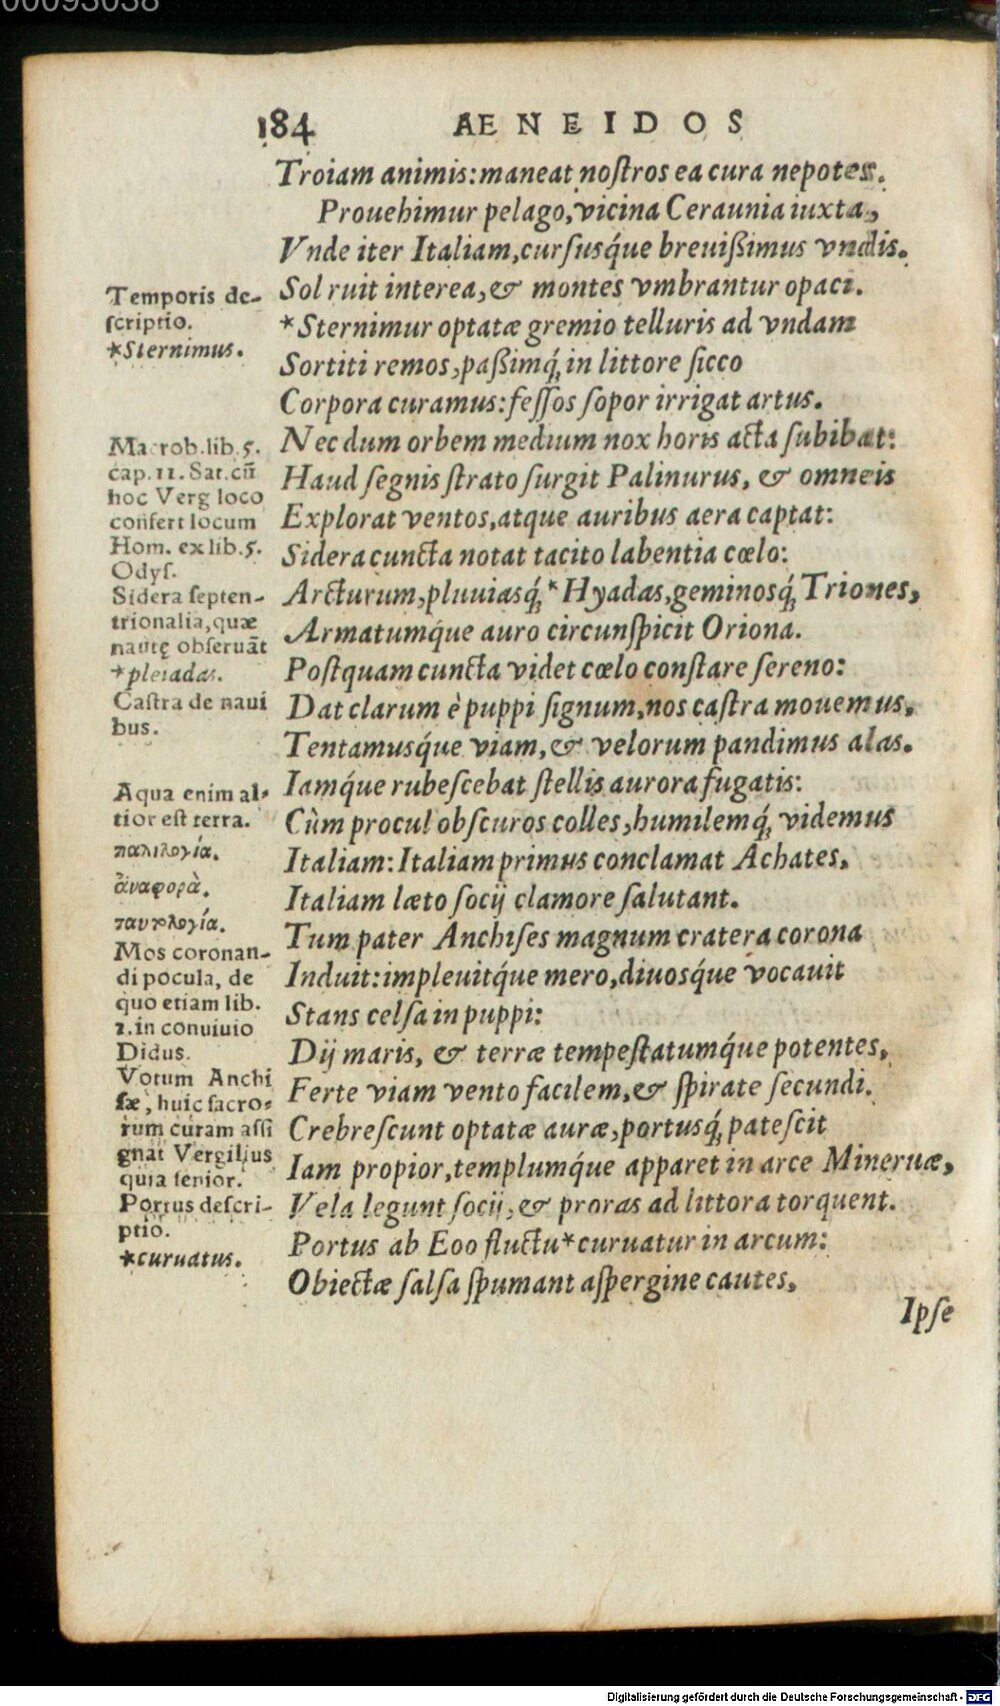 00093038
184 AENEIDOS
Troiam animis:maneat noſtros ea cura nepotes.
Prouehimur pelago,vicina Ceraunia iuxta,
Vnde iter Italiam,curſusq́ue breuißimus vndis.
Temporis de-
ſcriptio.
*Sternimus.
Sol ruit interea,& montes vmbrantur opaci.
*Sternimur optatæ gremio telluris ad vndam
Sortiti remos,paßimq́; in littore ſicco
Corpora curamus:feſſos ſopor irrigat artus.
Macrob.lib.5.
cap.11.Sat.cū
hoc Verg loco
confert locum
Hom. ex lib.5.
Odyſ.
Sidera ſepten-
trionalia,quæ
nautę obſeruāt
*pleiadas.
Caſtra de naui
bus.
Nec dum orbem medium nox horis acta ſubibat:
Haud ſegnis ſtrato ſurgit Palinurus, & omneis
Explorat ventos,atque auribus aera captat:
Sidera cuncta notat tacito labentia cœlo:
Arcturum,pluuiasq́;*Hyadas,geminosq́; Triones,
Armatumq́ue auro circunſpicit Oriona.
Poſtquam cuncta videt cœlo conſtare ſereno:
Dat clarum è puppi ſignum,nos caſtra mouemus,
Tentamusq́ue viam,& velorum pandimus alas.
Aqua enim al-
tior eſt terra.
παλιλογία.
ἀναφορὰ.
ταυτολογία.
Mos coronan-
di pocula, de
quo etiam lib.
1.in conuiuio
Didus.
Votum Anchi
ſæ, huic ſacro-
rum curam aſſi
gnat Vergilius
quia ſenior.
Portus deſcri-
ptio.
*curuatus.
Iamq́ue rubeſcebat ſtellis aurora fugatis:
Cùm procul obſcuros colles,humilemq́; videmus
Italiam:Italiam primus conclamat Achates,
Italiam læto ſocij clamore ſalutant.
Tum pater Anchiſes magnum cratera corona
Induit:impleuitq́ue mero,diuosq́ue vocauit
Stans celſa in puppi:
Dij maris, & terræ tempeſtatumq́ue potentes,
Ferte viam vento facilem,& ſpirate ſecundi.
Crebreſcunt optatæ auræ,portusq́; pateſcit
Iam propior,templumq́ue apparet in arce Mineruæ,
Vela legunt ſocij,& proras ad littora torquent.
Portus ab Eoo fluctu*curuatur in arcum:
Obiectæ ſalſa ſpumant aſpergine cautes,
Ipſe
Digitalisierung gefördert durch die Deutsche Forschungsgemeinschaft - DFG